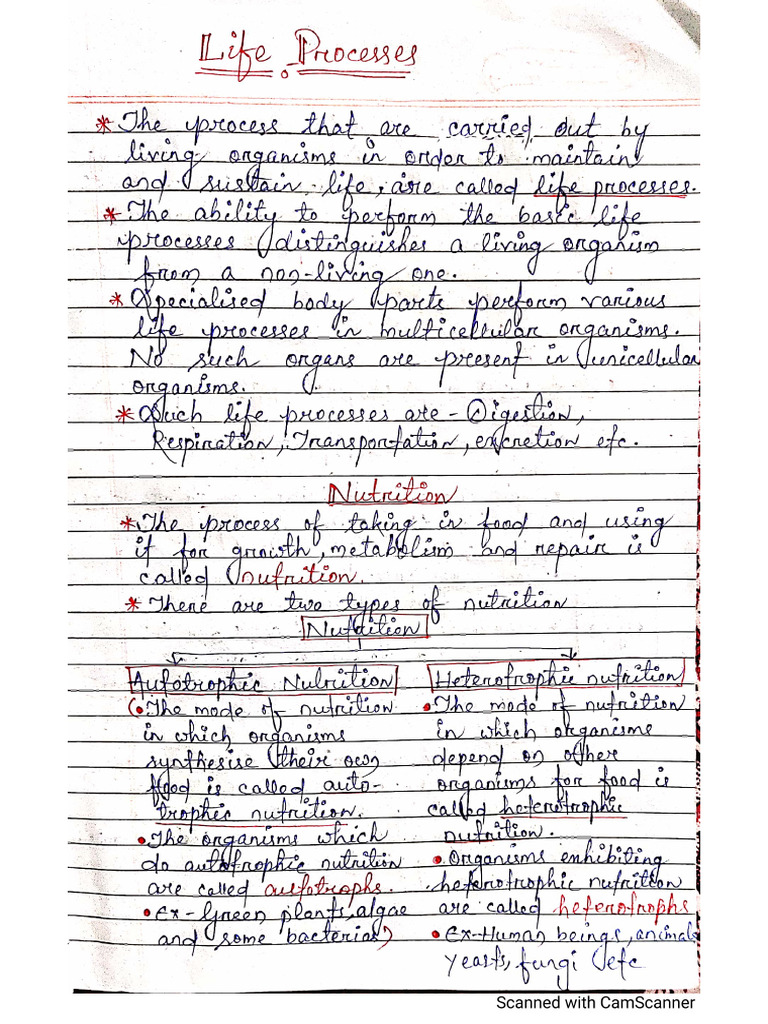 Life Processes
* The process that are carried out by
living organisms in order to maintain
and sustain life, are called life processes.
* The ability to perform the basic life
processes distinguishes a living organism
from a non-living one.
* Specialised body parts perform various
life processes in multicellular organisms.
No such organs are present in unicellular
organisms.
* Such life processes are - Digestion,
Respiration, Transportation, excretion etc.
Nutrition
* The process of taking in food and using
it for growth, metabolism and repair is
called nutrition.
* There are two types of nutrition
Nutrition
Autotrophic Nutrition
(• The mode of nutrition
in which organisms
synthesise their own
food is called auto-
trophic nutrition.
• The organisms which
do autotrophic nutrition
are called autotrophs.
• Ex- Green plants, algae
and some bacterias)
Heterotrophic nutrition
• The mode of nutrition
in which organisms
depend on other
organisms for food is
called heterotrophic
nutrition.
• Organisms exhibiting
heterotrophic nutrition
are called heterotrophs
• Ex- Human beings, animals
yeasts, fungi etc
Scanned with CamScanner